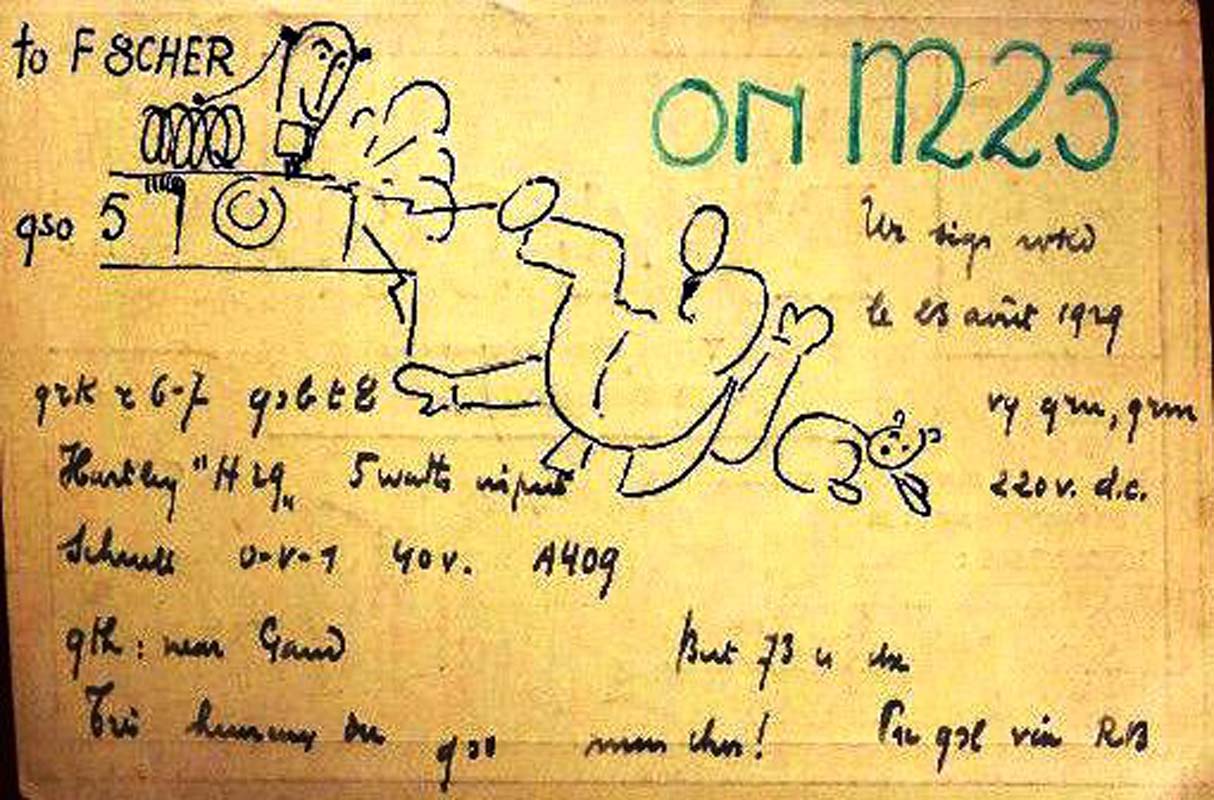 to F 8CHER
ON M23
qso 5
Ur sigs wkd
le 23 août 1929
qrk r 6-7 qsb t 8
vy qrm, qrnn
Hartley "H 29" 5 watts input
220 v. d.c.
Schnell 0-V-1 40 v. A409
qth : near Gand
Best 73 u dx
Très heureux du qso mon cher!
Pse qsl via RB